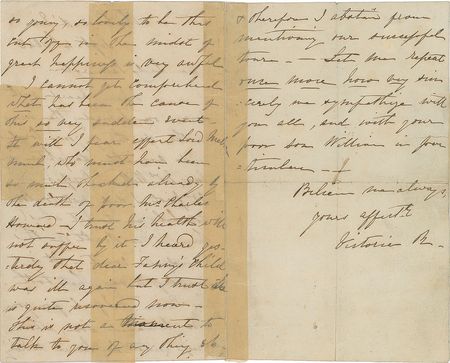 so young, so lovely to be thus
cut off in the midst of
great happiness is very awful
I cannot yet comprehend
what has been the cause of
this so very sudden event
it will I fear affect Lord Mel
who must have been
so much shocked already by
the death of poor Mrs Charles
Howard. I trust his health will
not suffer by it. I heard yes-
terday that dear Fanny's Child
was ill again but I trust
is quite recovered now –
This is not a moment to
talk to you of any thing else
& therefore I abstain from
mentioning our successful
tour. – Let me repeat
once more how very sin-
cerely we sympathize with
you all, and with your
poor son William in par-
ticular –
Believe me always,
yours affecte
Victoria R –